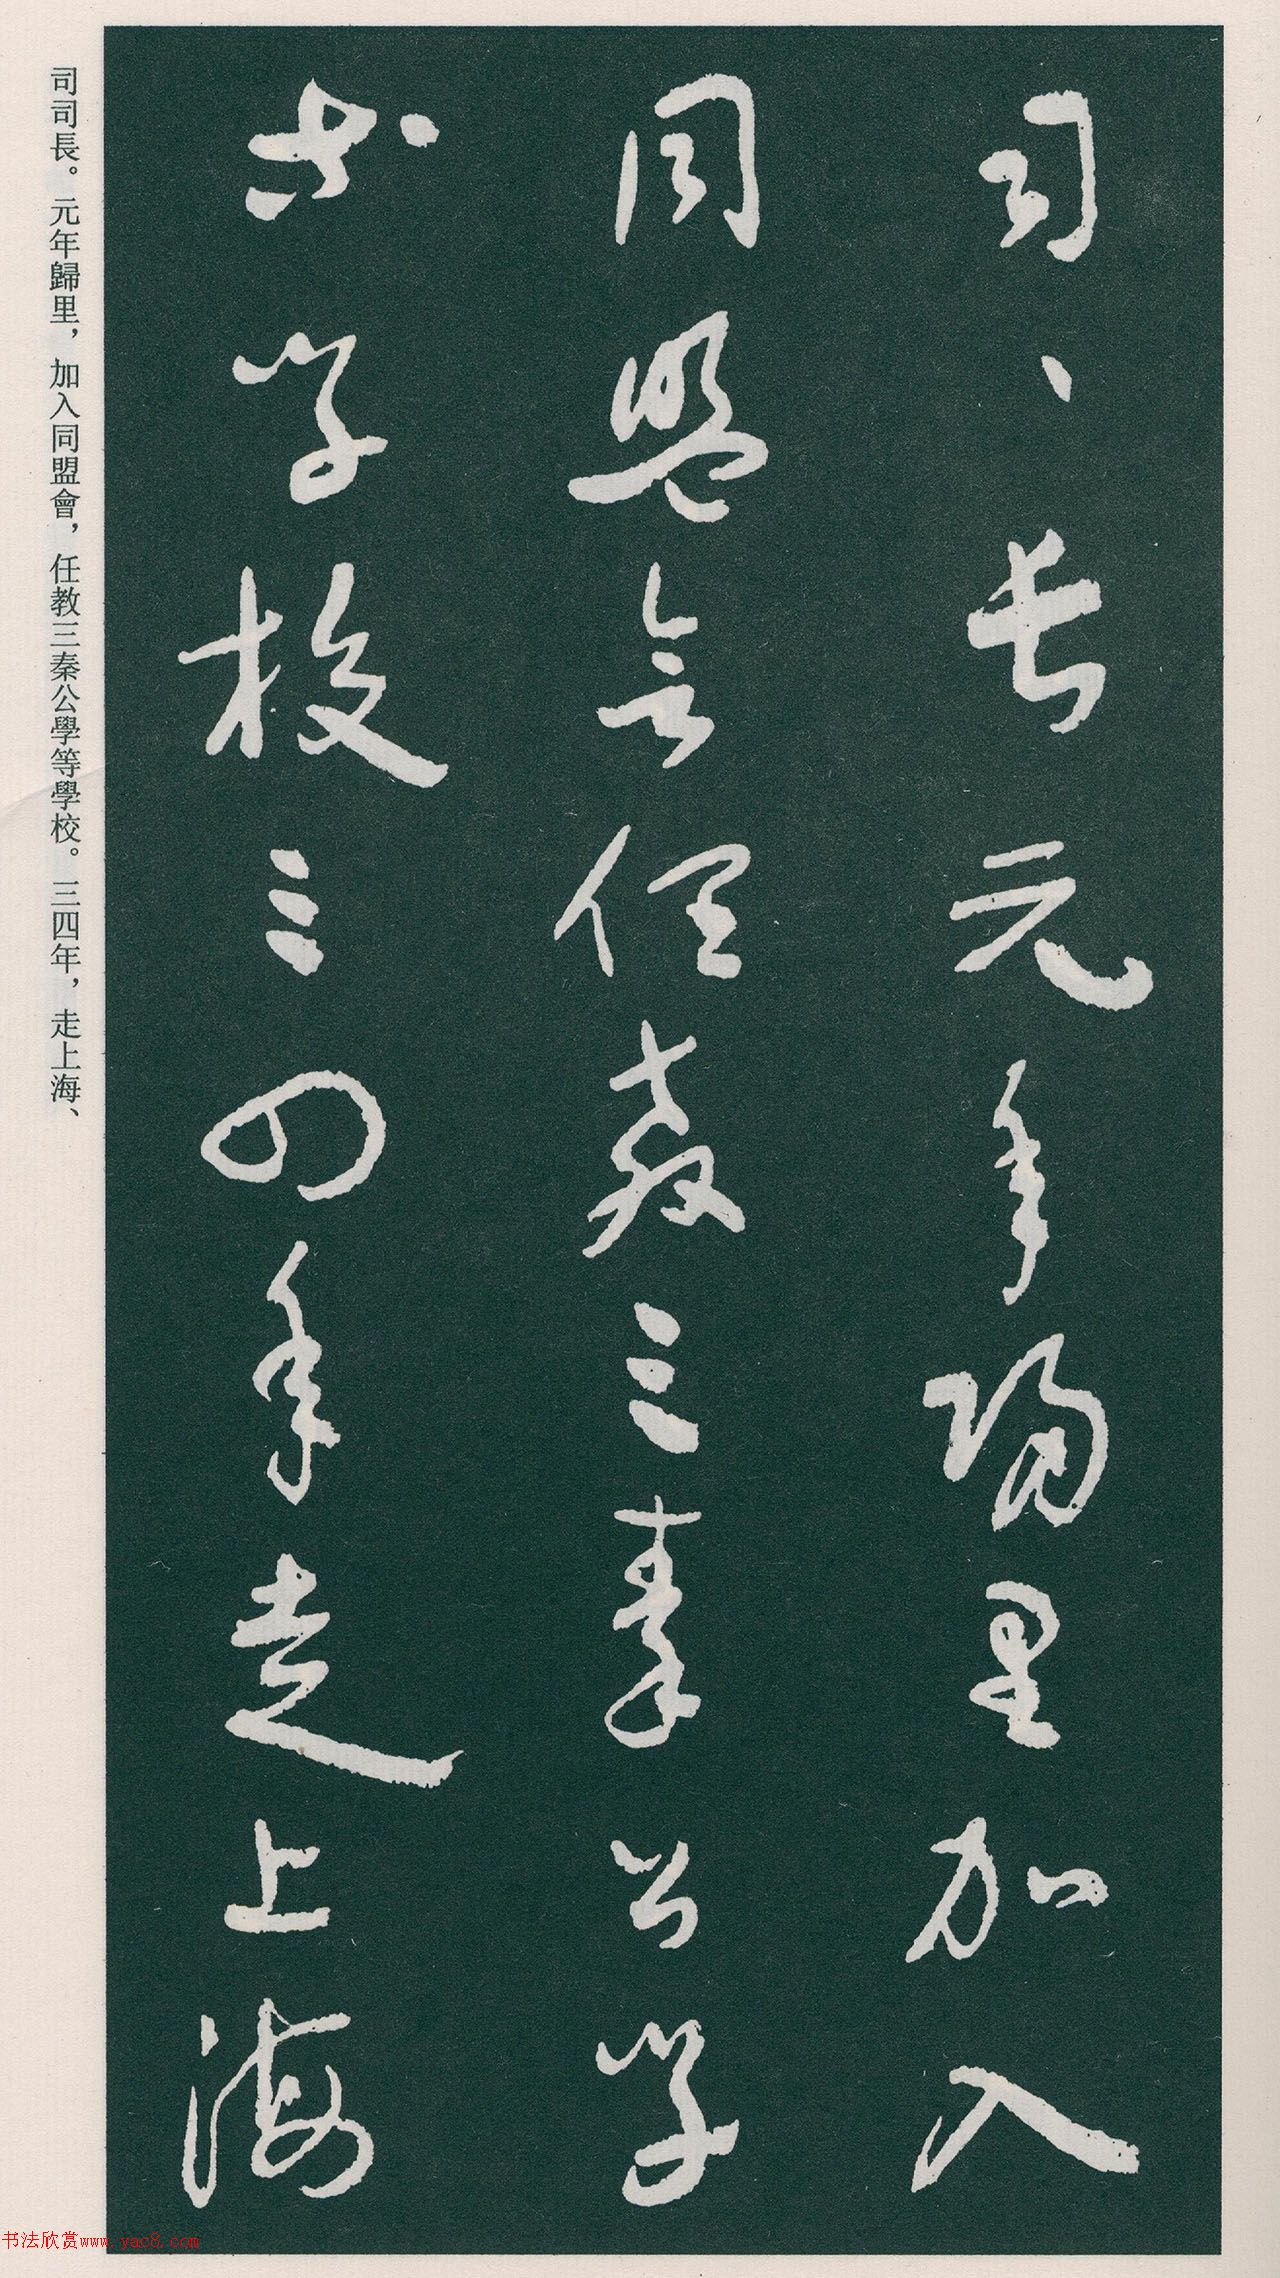 司、長元年歸里加入
同盟會任教三秦公學
等學校三四年走上海
司司長。元年歸里，加入同盟會，任教三秦公學等學校。三四年，走上海、
书法欣赏www.yac8.com